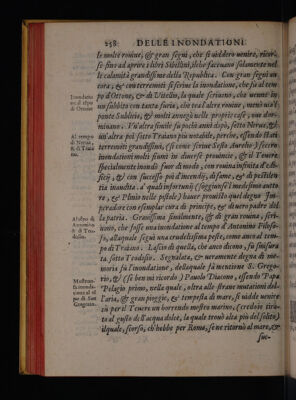 258 DELLE INONDATIONI
le molte rovine, & gran segni, che si viddero venire, ricorse
sino ad aprire i libri Sibillini, ilche facevano solamente nelle
le calamità grandissime della Republica. Con gran segni ancora,
& con terremoti si scrive la inondatione, che fu al tempo
d'Ottone, & di Vitellio, la quale scrivono, che venne in
un subbito con tanta furia, che tra l'altre rovine, menò via'l
ponte Sublicio, & molti annegò nelle proprie case, que dormivano.
Vn'altra simile fu pochi anni dipoi, sotto Nerva, &
un'altra poi sotto Traiano più notabile, perche, essendo stati
terremoti grandissimi, (si come scrive Sesto Aurelio) fecero
inondationi molti fiumi in diverse provincie, & il Tevere
specialmente inondò fuor di modo, con rovina infinita d'edificij,
& con successo poi d'incendij, di fame, & di pestilentia
inaudita. a quali infortunij (soggiunse'l medesimo auttore,
& Plinio nelle pistole) hauer proveduto quel degno Imperadore
con essemplar cura di prencipe, & di vero padre della
patria. Gravissima similmente, & di gran rovina, scrivono,
che fosse una inondatione al tempo d'Antonino Filosofo,
allaquale seguì una crudelissima peste, come ancora al tempo
di Traiano. Lascio di quella, che anco dicono, fu smisurata
sotto Teodosio. Segnalata, & veramente degna di memoria
fu l'inondatione, dellaquale fa mentione S. Gregorio,
& (se ben mi ricordo) Paulo Diacono, essendo Papa
Pelagio primo, nella quale, oltra alle strane mutationi dell'aria,
& gran pioggie, & tempesta di mare, si vidde venire
sù per il Tevere un horrendo mostro marino, (credo io tirato
al gusto dell'acqua dolce, la quale trovò alta più del solito)
ilquale, scorso, ch'hebbe per Roma, se ne ritornò al mare, &
suc-
Inondatione
al tempo
di Ottone
Al tempo
di Nerva,
& di Traiano.
Al tempo di
Antonino
& di Teodosio.
Mostruosa
inondatione
al tempo
di San
Gregorio.